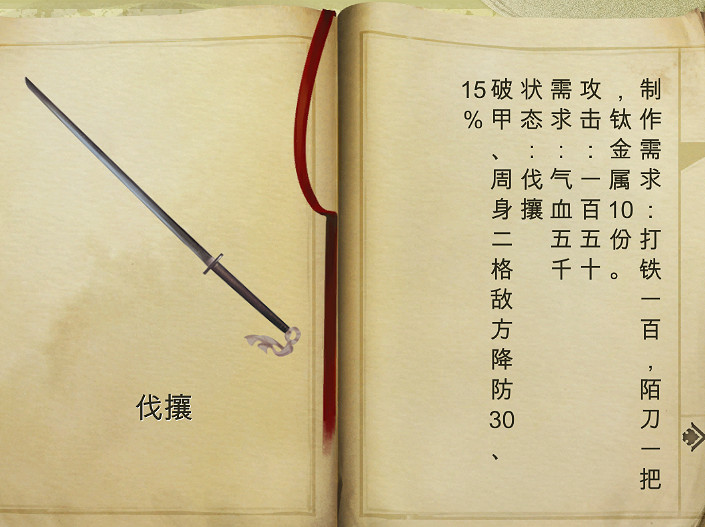 伐攘
制作需求：打铁一百，陌刀一把
，钛金属10份。
攻击：一百五十
需求：气血五千
状态：伐攘
破甲、周身二格敌方降防30、
15%